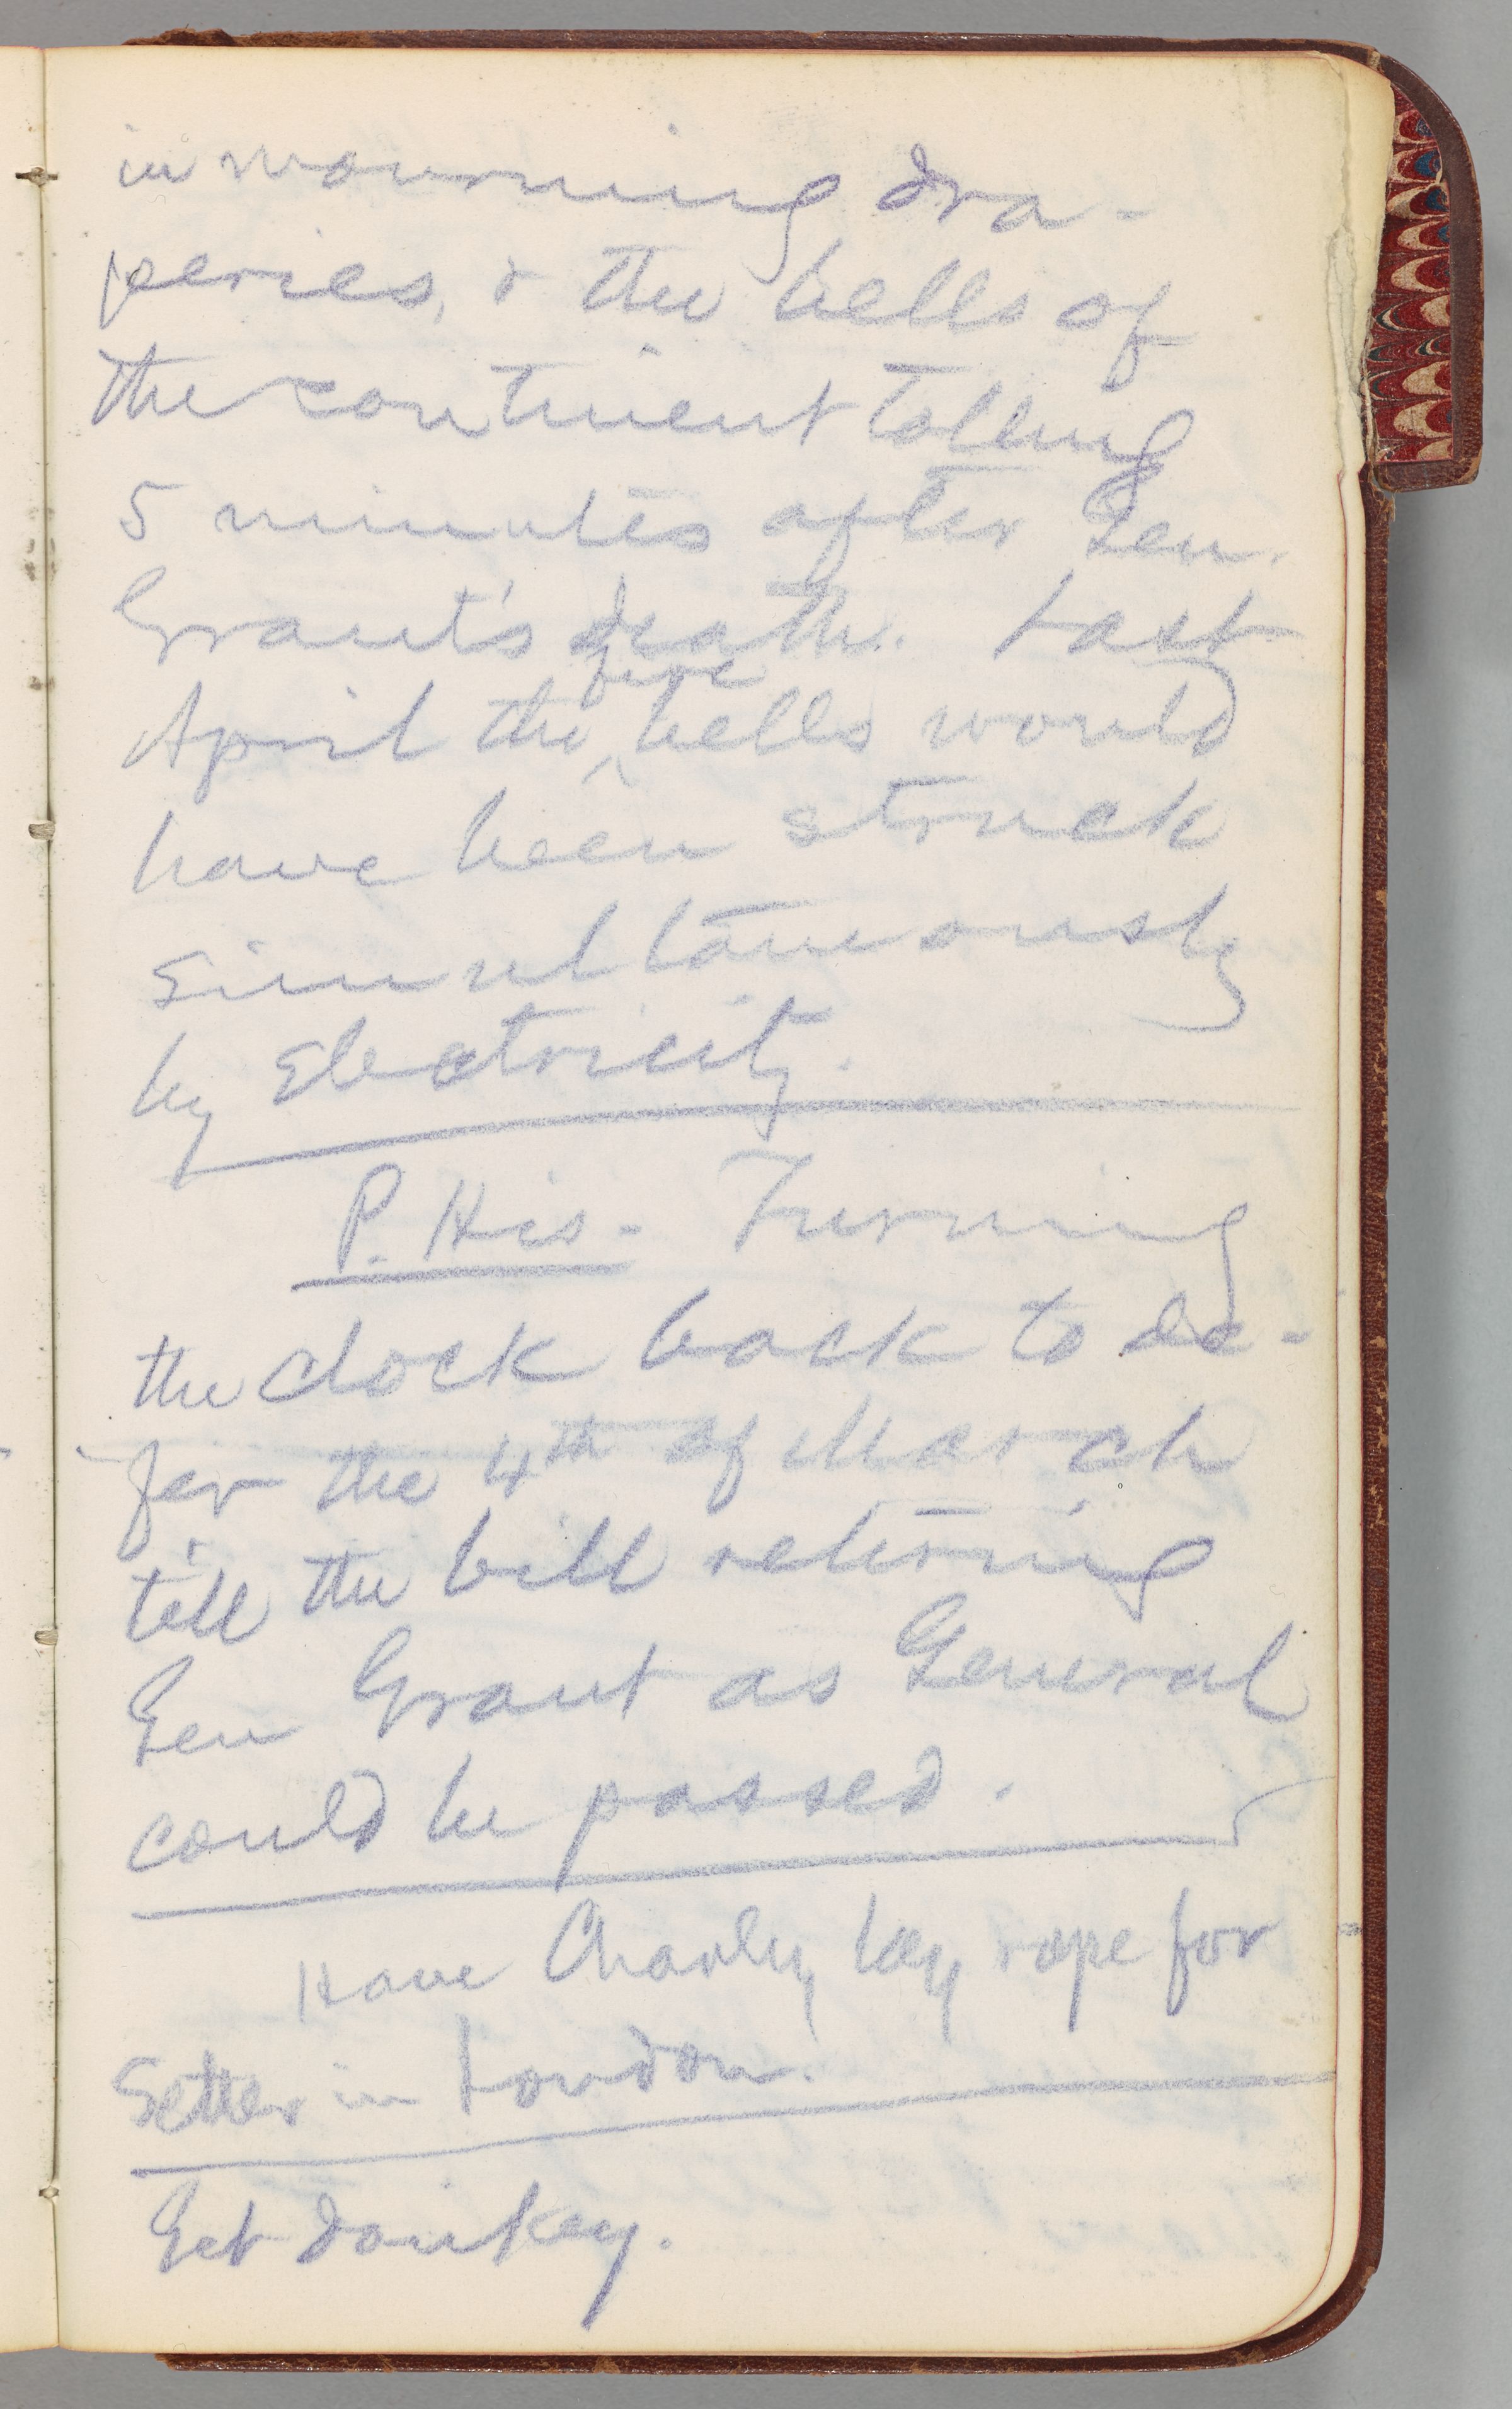 in mourning dra-
peries, & the bells of
the continent tolling
5 minutes after Gen.
Grant's death. Last
April the fire bells would
have been struck
simultaneously
by Electricity.
P. His. Turning
the clock back to de-
fer the 4th of March
till the bill retiring
Gen Grant as General
could be passed.
Have Charley buy rope for
Setter in London.
Get donkey.